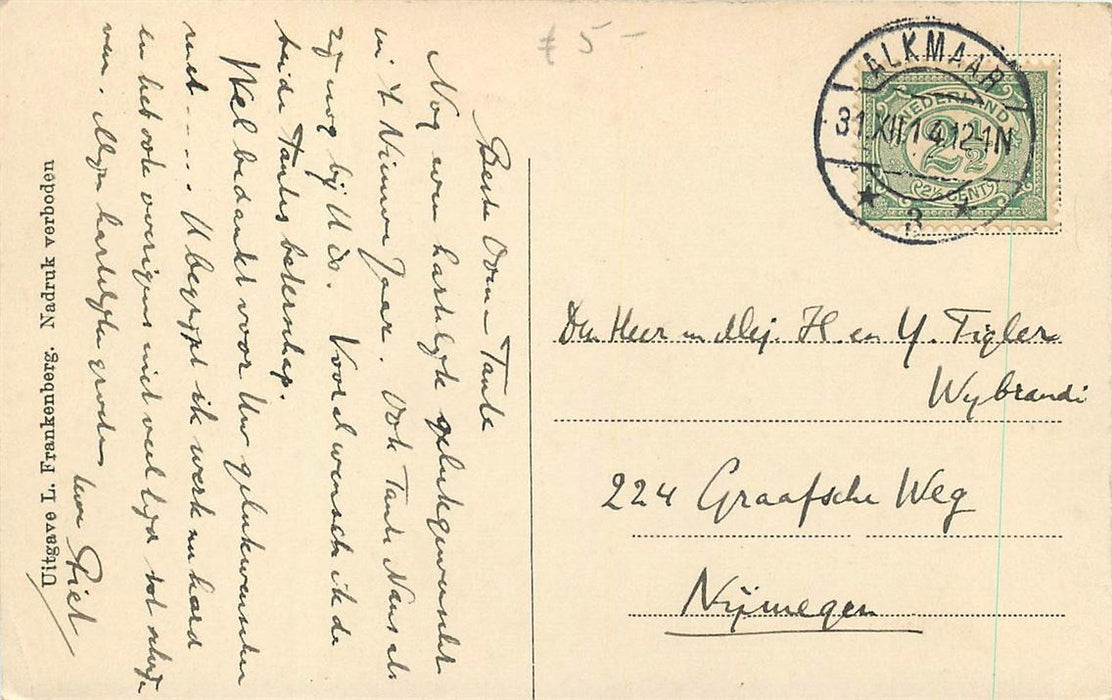 Beste Oom en Tante
Nog wen hartelyk gelukgewenscht
in 't Nieuwe Jaar. Ook Tante Nans als
zy nog bij U is. Vooral wensch ik de
beide Tantes beterschap.
Wel bedankt voor Uw gelukwenschen
met ..... U begrypt ik werk nu hard
en heb ook overigens niet veel tyd tot
ven. Myn hartelyke groeten
Uw Piet
Uitgave L. Frankenberg. Nadruk verboden
£ 5 -
ALKMAAR
31.XII.14.12-1N
3
NEDERLAND
2½
2½ CENT
Den Heer en Mej. H. en Y. Tigler
Wybrandi
224 Graafsche Weg
Nijmegen